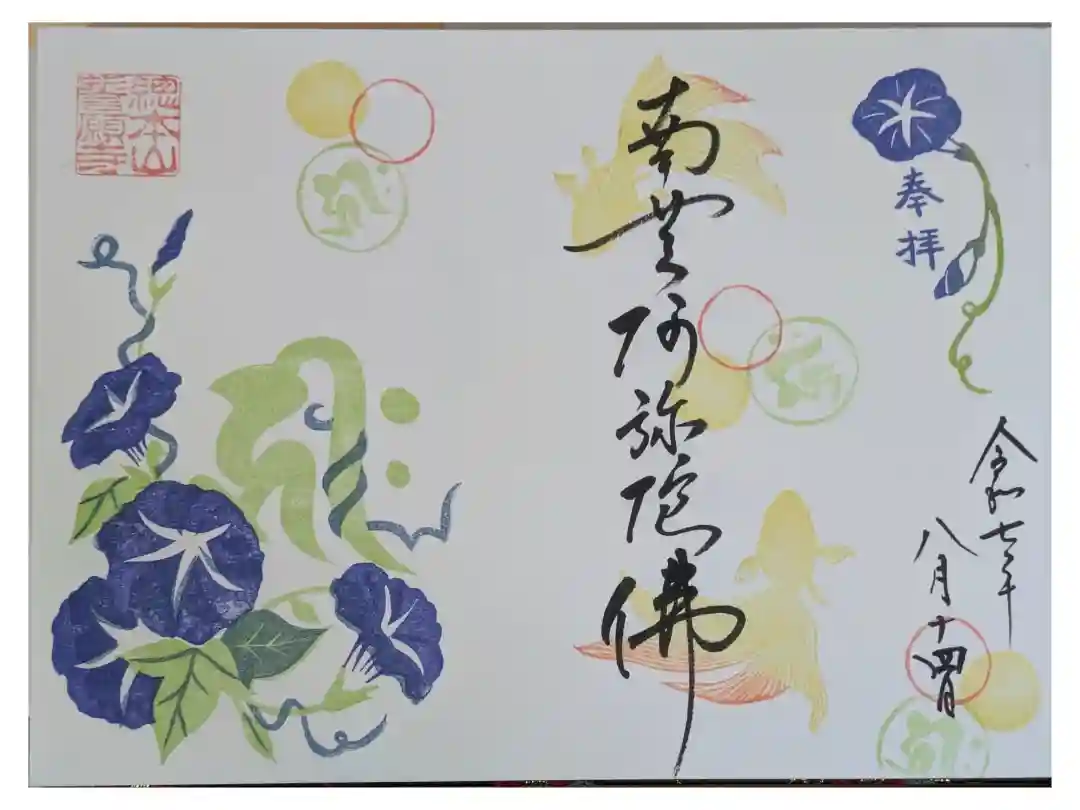 奉拝
令和七年
八月十四日
南無阿弥陀佛
總本山
誓願寺